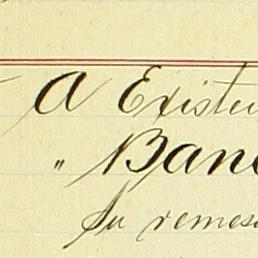 A Existen
" Banc
Su remes